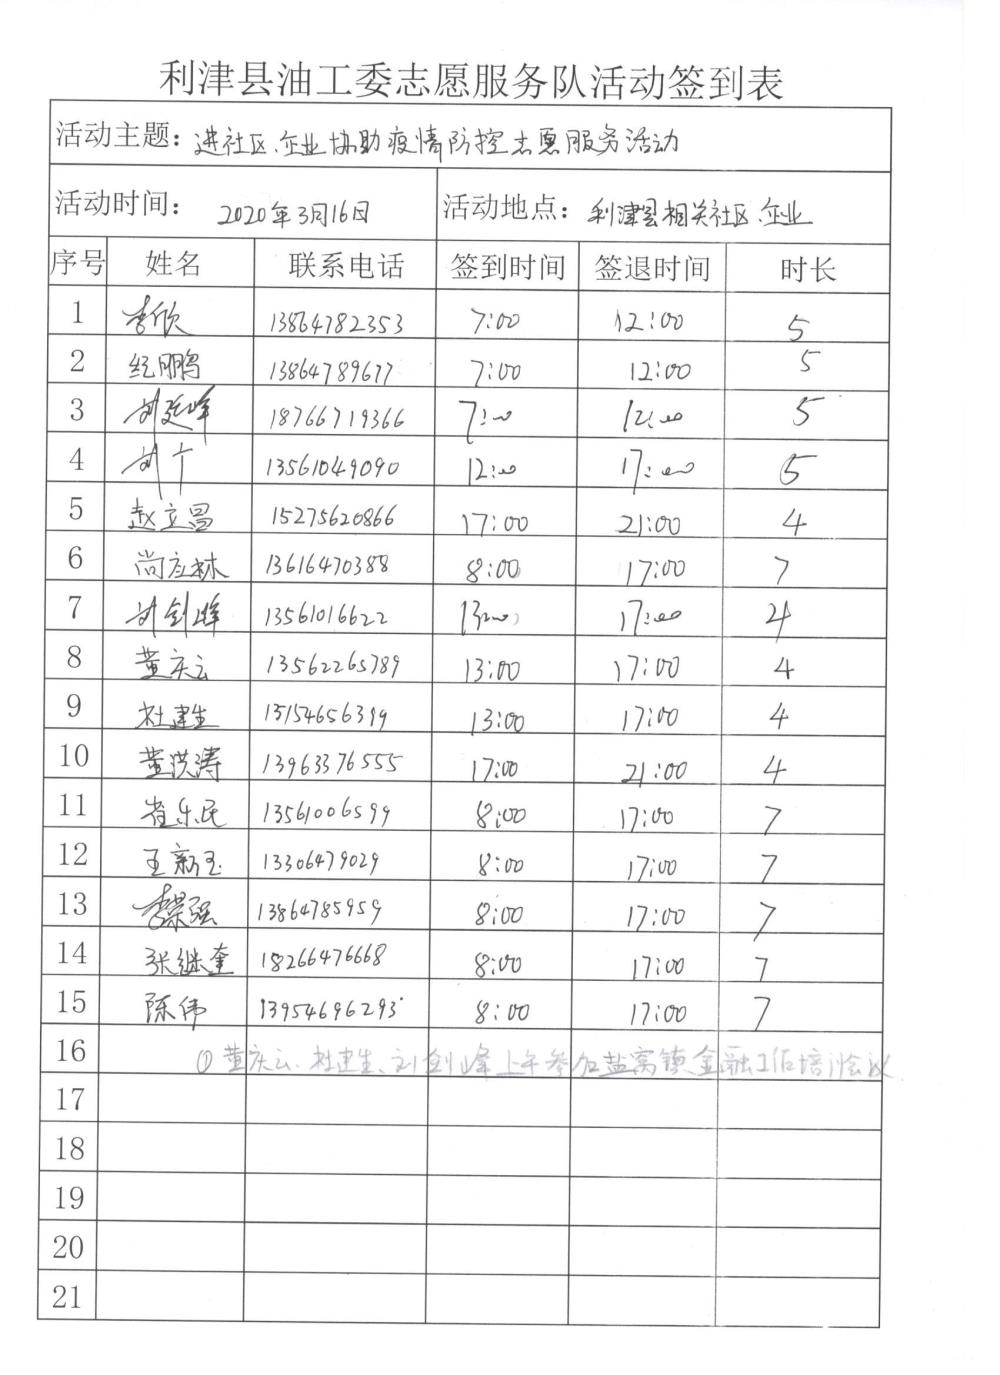 利津县油工委志愿服务队活动签到表
活动主题：进社区、企业协助疫情防控志愿服务活动
活动时间：2020年3月16日 活动地点：利津县相关社区、企业
序号 姓名 联系电话 签到时间 签退时间 时长
1 李欣 13864782353 7:00 12:00 5
2 纪鹏 13864789677 7:00 12:00 5
3 刘延峰 18766719366 7:00 12:00 5
4 刘 13561049090 12:00 17:00 5
5 赵立昌 15275620866 17:00 21:00 4
6 尚应林 13616470388 8:00 17:00 7
7 刘剑峰 13561016622 13:00 17:00 4
8 董庆云 13562265789 13:00 17:00 4
9 杜建生 15154656399 13:00 17:00 4
10 董洪涛 13963376555 17:00 21:00 4
11 崔乐民 13561006599 8:00 17:00 7
12 王新玉 13306479029 8:00 17:00 7
13 李荣强 13864785959 8:00 17:00 7
14 张继奎 18266476668 8:00 17:00 7
15 陈伟 13954696293 8:00 17:00 7
16 ①董庆云、杜建生、刘剑峰上午参加盐窝镇金融工作培训会议
17
18
19
20
21